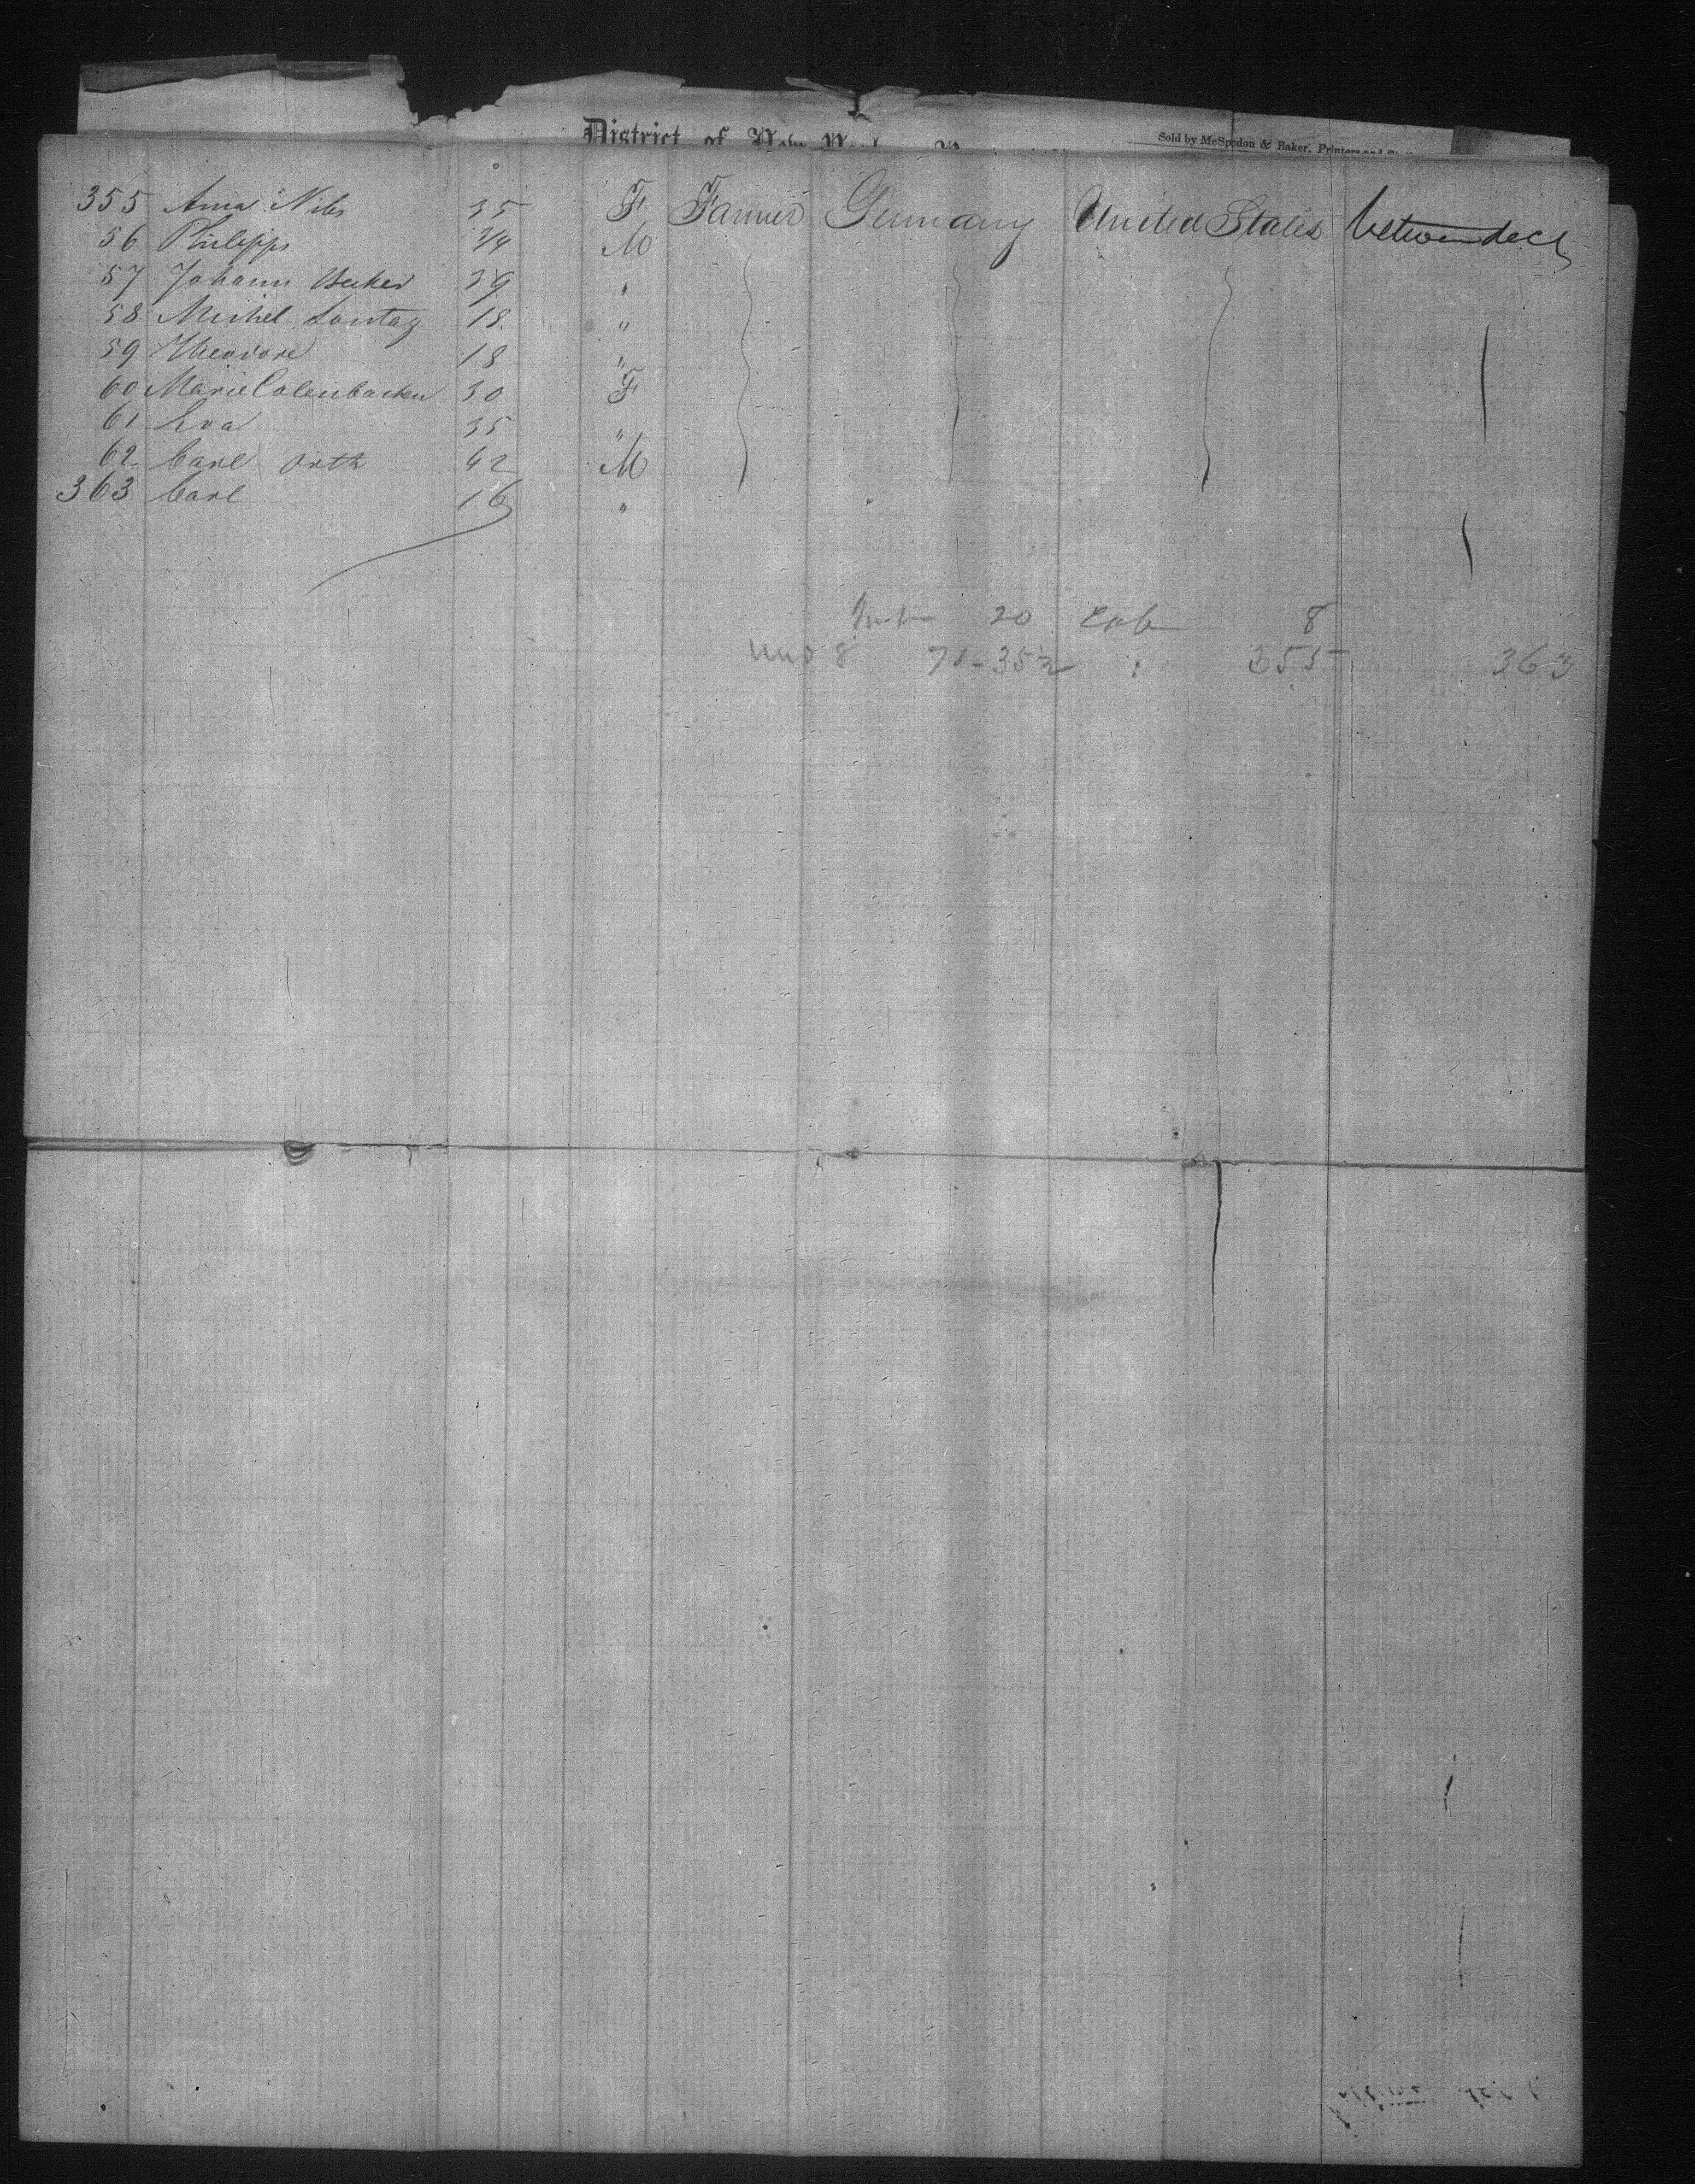 District of New York
Sold by McSpedon & Baker, Printers and
355 Anna Nibs 35 F Farmer Germany United States between deck
56 Philipps 3/4 M
57 Johann Becker 39 "
58 Michel Sontag 18 "
59 Theodore 18 "
60 Marie Colenbacken 30 F
61 Eva 35 "
62 Carl Orth 42 M
363 Carl 16 "
20 Cab 8
und 8 71-35½ : 355 363